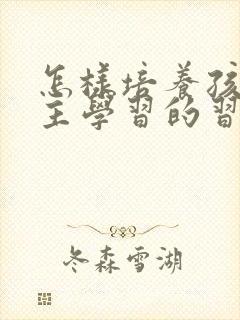 怎樣培養孩
主學習的習
冬森雪湖